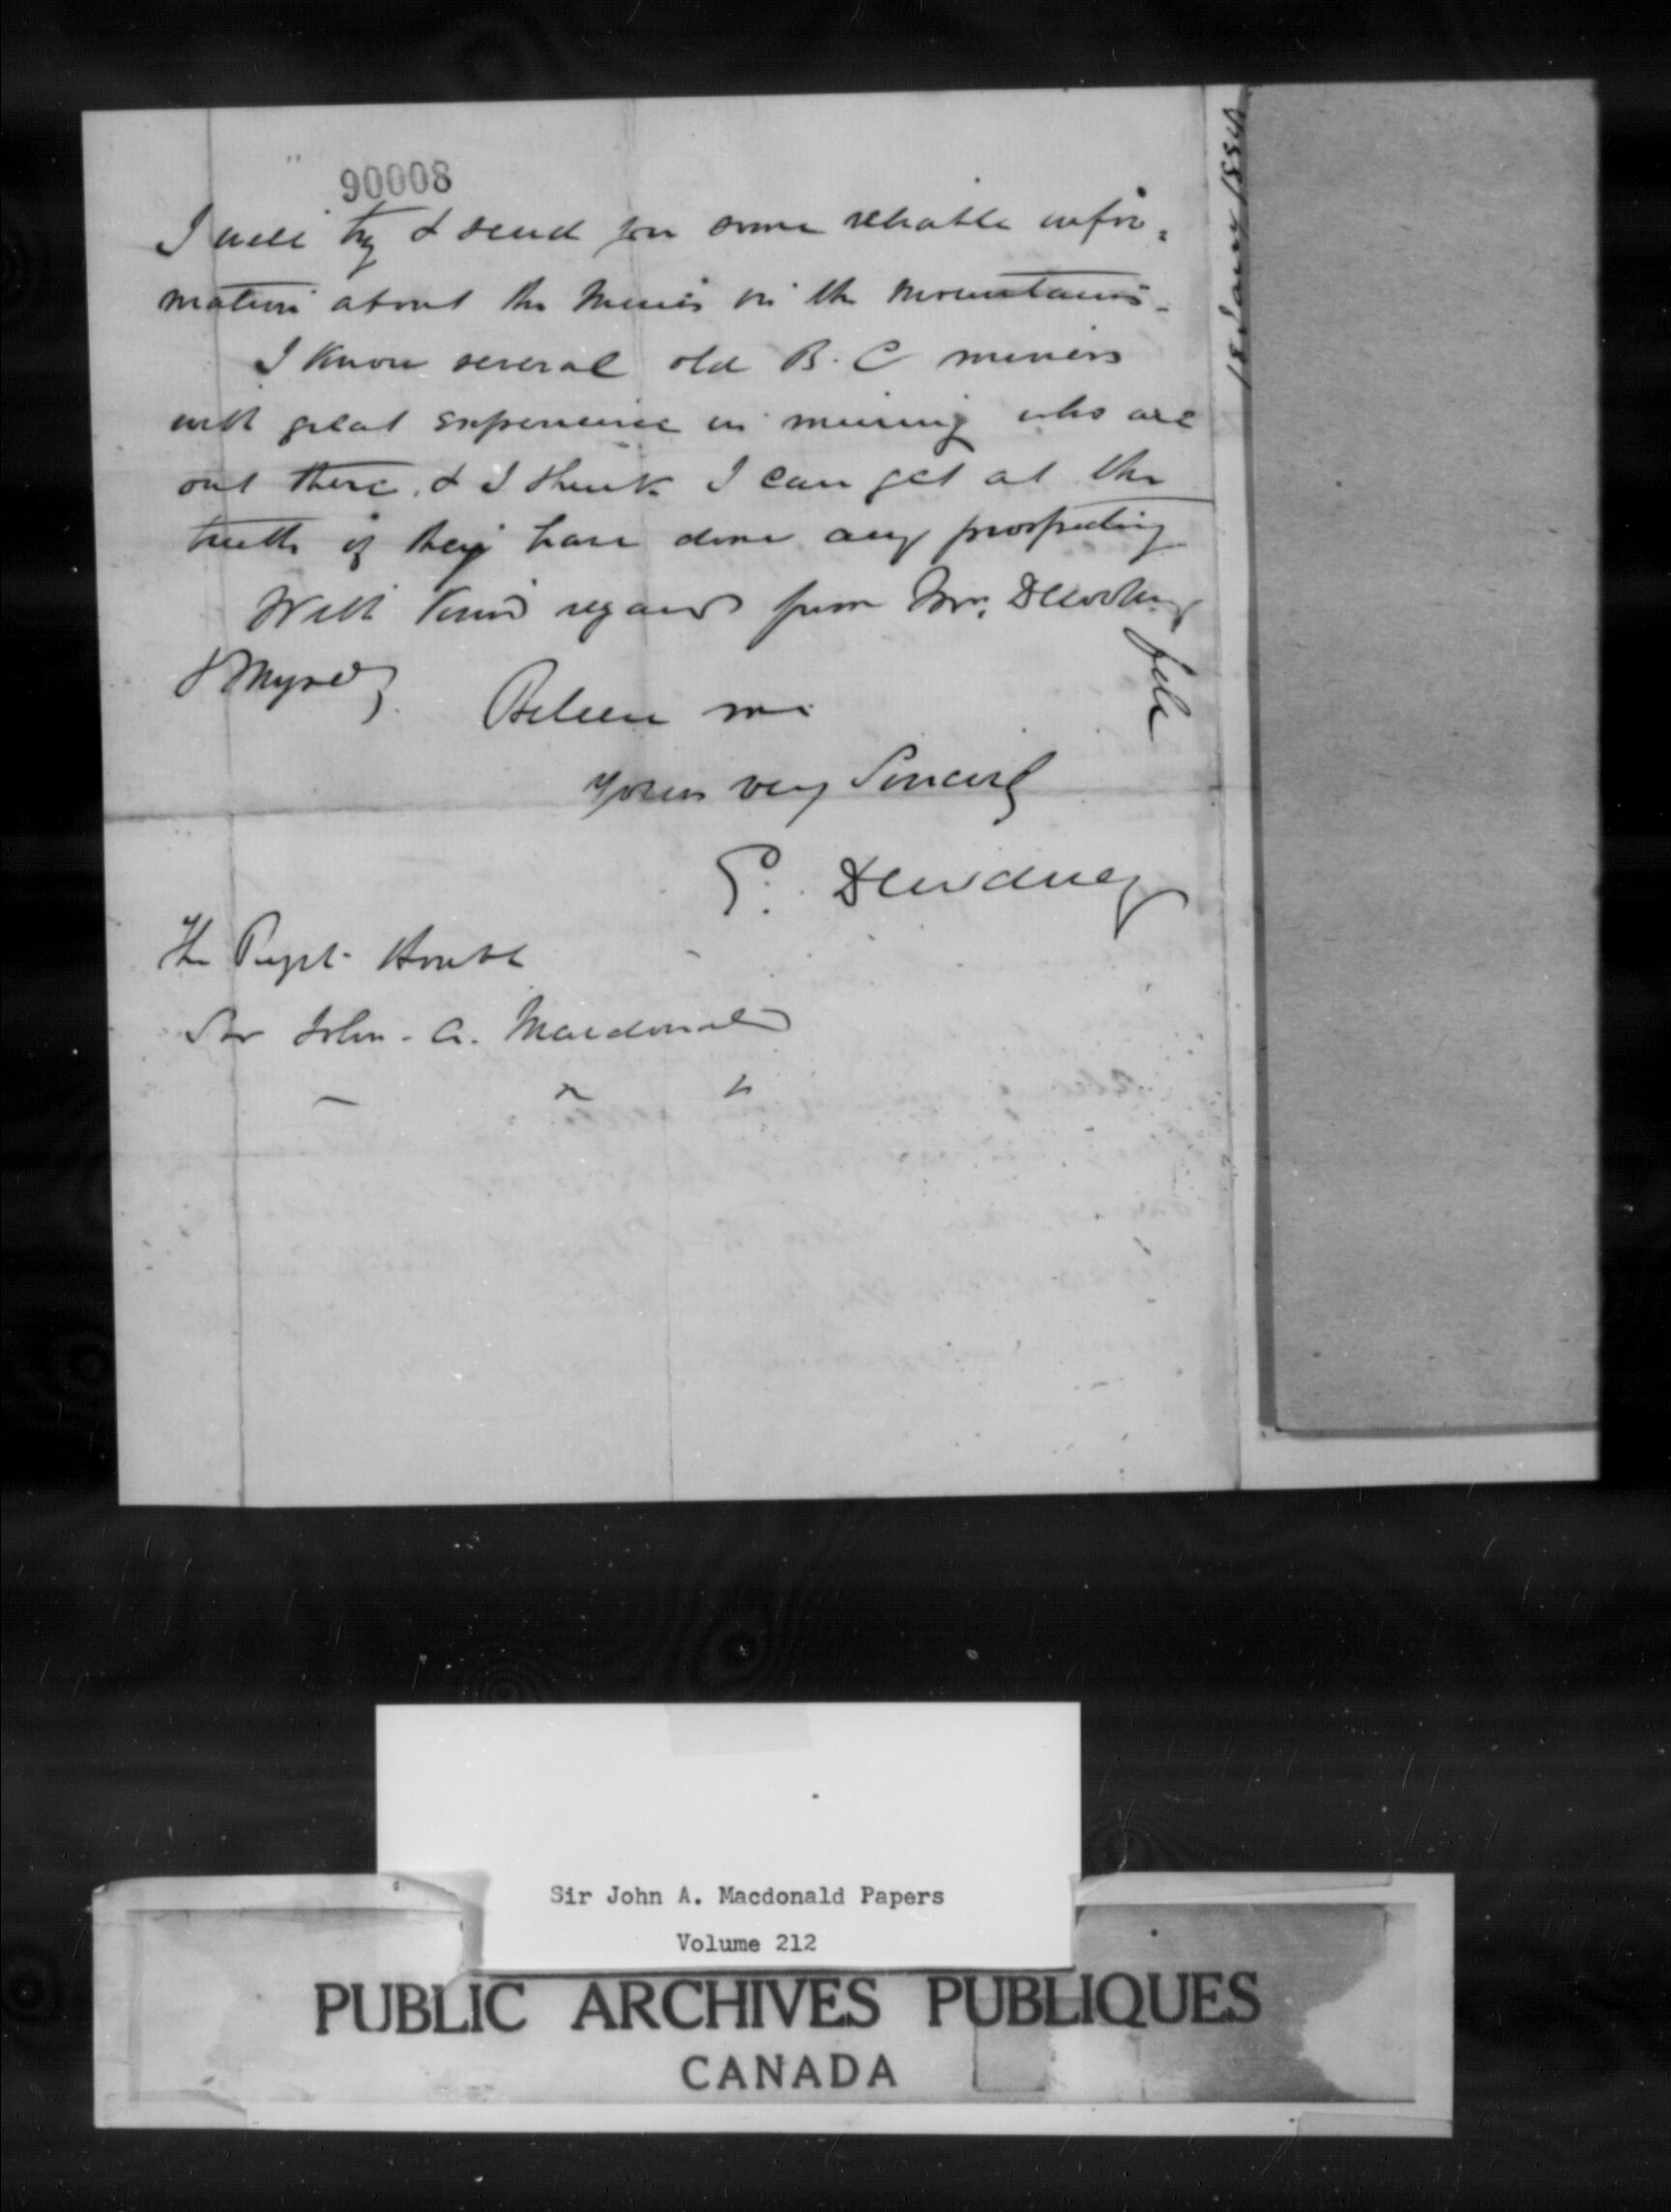 90008
I will try & send you some reliable infor=
mation about the mines in the mountains-
I know several old B. C miners
with great experience in mining who are
out there, & I think I can get at the
truth if they have done any prospecting
With kind regards from Mrs. Dewdney
& Myself
Believe me
Yours very Sincerely
E. Dewdney
The Right Honble
Sir John. A. Macdonald
18 Jany 1884
Sir John A. Macdonald Papers
Volume 212
PUBLIC ARCHIVES PUBLIQUES
CANADA